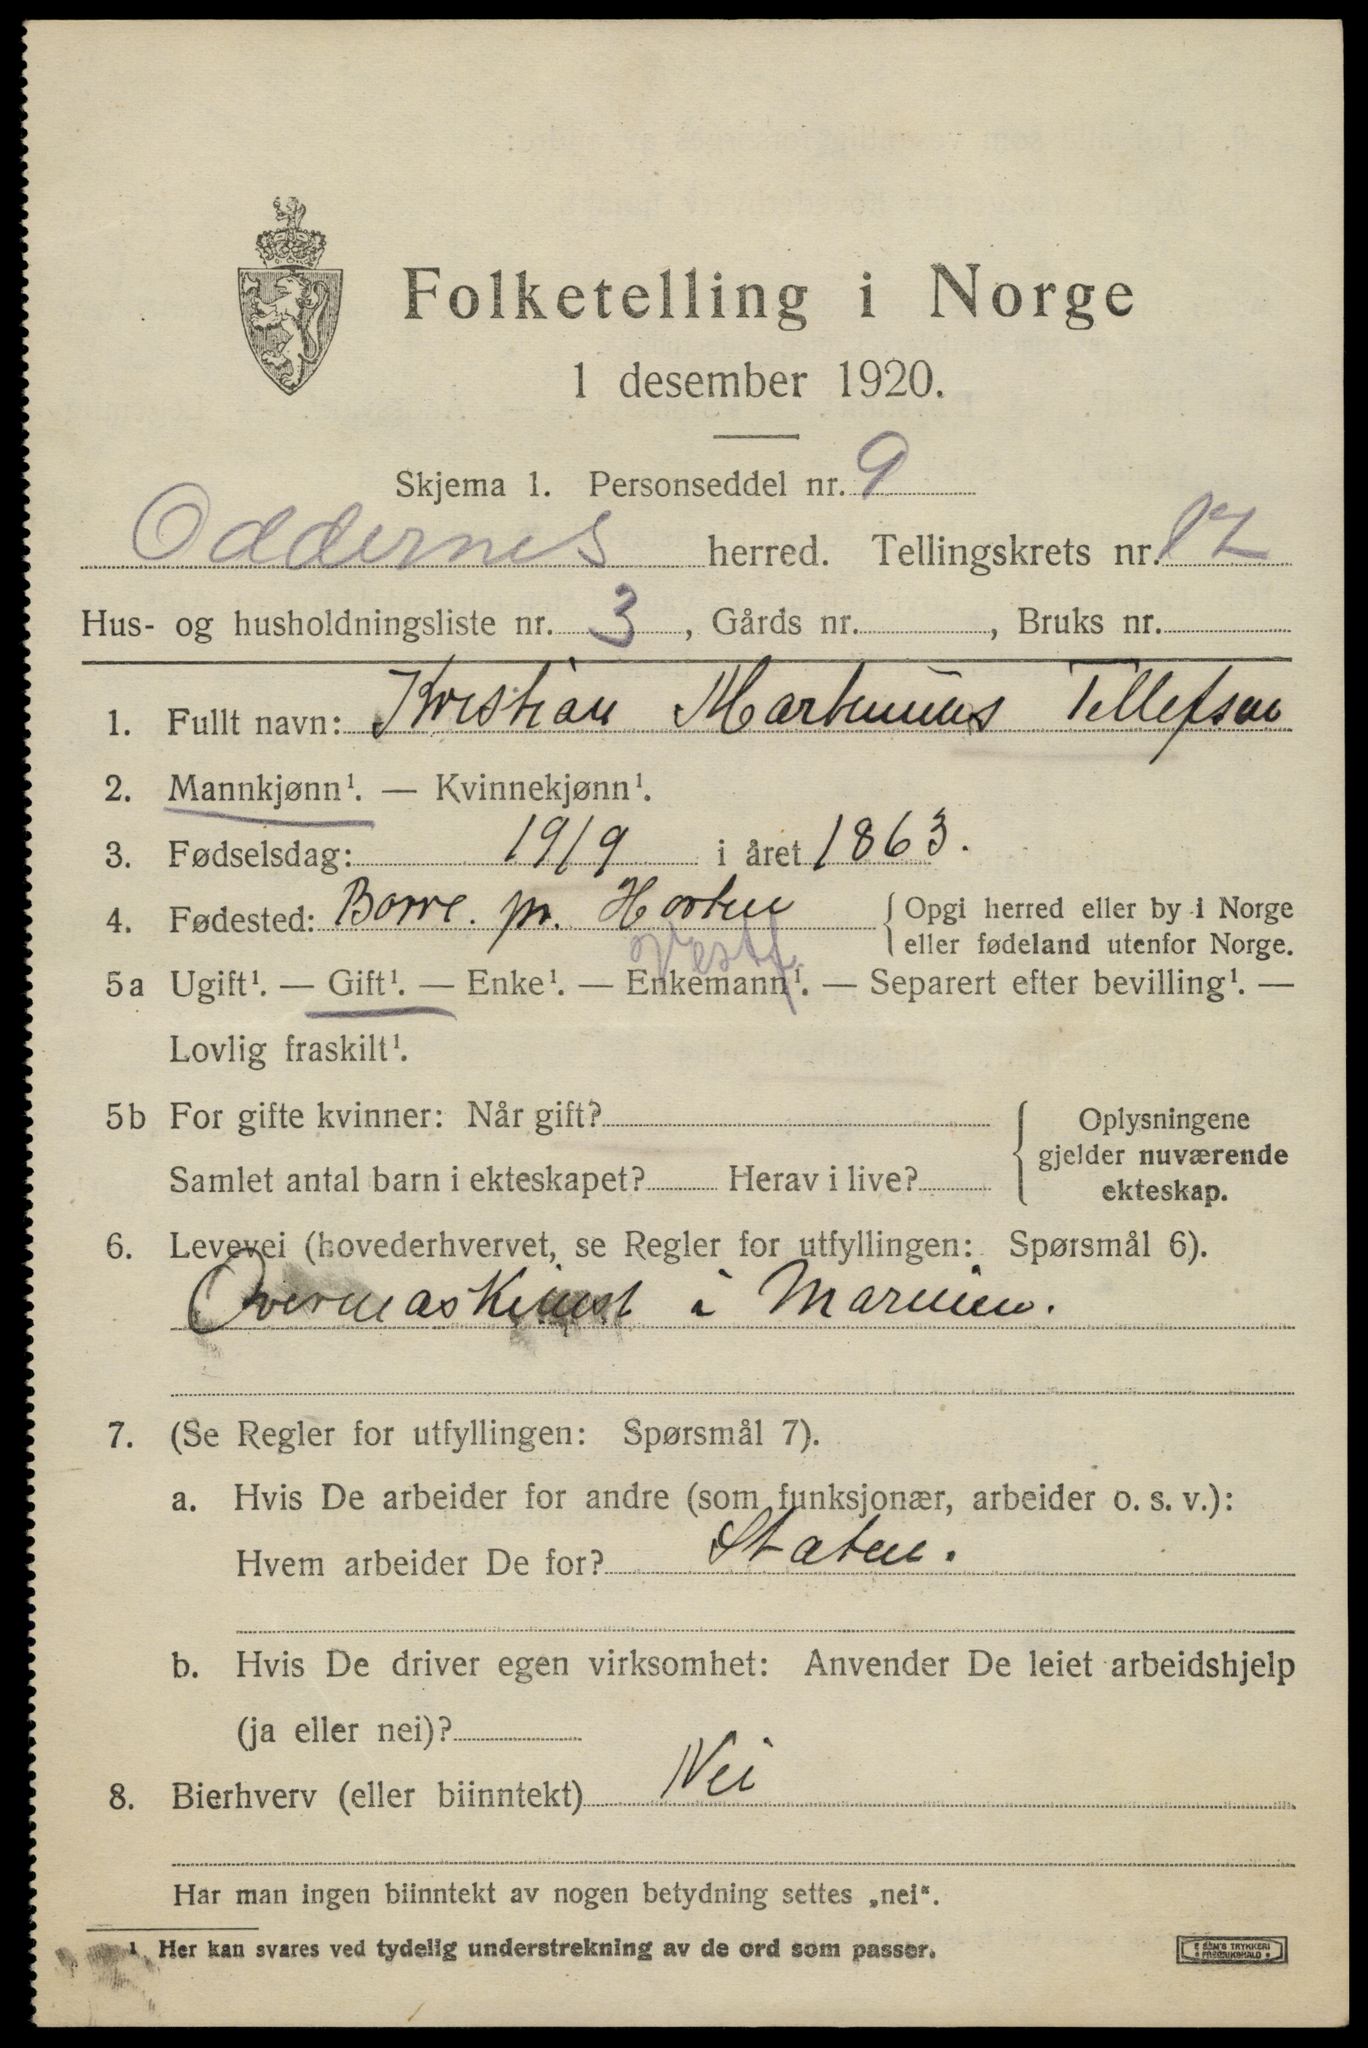 Folketelling i Norge
1 desember 1920.
Skjema 1. Personseddel nr. 9
Oddernes herred. Tellingskrets nr. 12
Hus- og husholdningsliste nr. 3, Gårds nr. , Bruks nr.
1. Fullt navn: Kristian Martinius Tellefsen
2. Mannkjønn¹. — Kvinnekjønn¹.
3. Fødselsdag: 19/9 i året 1863.
4. Fødested: Borre. pr. Horten { Opgi herred eller by i Norge
eller fødeland utenfor Norge.
Vestf.
5a Ugift¹. — Gift¹. — Enke¹. — Enkemann¹. — Separert efter bevilling¹. —
Lovlig fraskilt¹.
5b For gifte kvinner: Når gift? { Oplysningene
gjelder nuværende
Samlet antal barn i ekteskapet? Herav i live? ekteskap.
6. Levevei (hovederhvervet, se Regler for utfyllingen: Spørsmål 6).
Overmaskinist i Marinen.
7. (Se Regler for utfyllingen: Spørsmål 7).
a. Hvis De arbeider for andre (som funksjonær, arbeider o. s. v.):
Hvem arbeider De for? Staten.
b. Hvis De driver egen virksomhet: Anvender De leiet arbeidshjelp
(ja eller nei)?
8. Bierhverv (eller biinntekt) Nei
Har man ingen biinntekt av nogen betydning settes „nei“.
¹ Her kan svares ved tydelig understrekning av de ord som passer.
E SEM'S TRYKKERI
FREDRIKSHALD